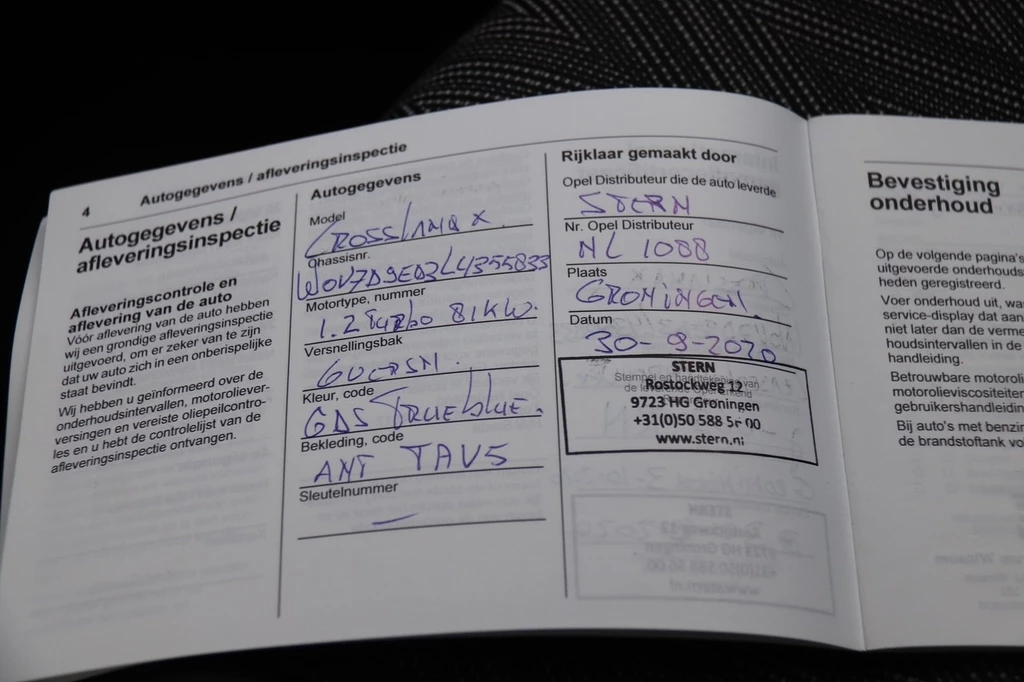 4
Autogegevens / afleveringsinspectie
Autogegevens /
afleveringsinspectie
Afleveringscontrole en
aflevering van de auto
Vóór aflevering van de auto hebben
wij een grondige afleveringsinspectie
uitgevoerd, om er zeker van te zijn
dat uw auto zich in een onberispelijke
staat bevindt.
Wij hebben u geïnformeerd over de
onderhoudsintervallen, motoroliever-
versingen en vereiste oliepeilcontro-
les en u hebt de controlelijst van de
afleveringsinspectie ontvangen.
Autogegevens
Model
CROSSLAND X
Chassisnr.
W0V7D9ED3L4355833
Motortype, nummer
1.2 Turbo 81KW.
Versnellingsbak
Kleur, code
GDS TRUE blue.
Bekleding, code
ANT TAV5
Sleutelnummer
—
Rijklaar gemaakt door
Opel Distributeur die de auto leverde
STERN
Nr. Opel Distributeur
NL 1088
Plaats
GRONINGEN
Datum
30-9-2020
STERN
Stempel en handtekening van
Rostockweg 12
9723 HG Groningen
+31(0)50 588 56 00
www.stern.nl
Bevestiging
onderhoud
Op de volgende pagina's
uitgevoerde onderhouds
heden geregistreerd.
Voer onderhoud uit, wa
service-display dat aan
niet later dan de verme
houdsintervallen in de
handleiding.
Betrouwbare motoroli
motorolieviscositeiten
gebruikershandleidin
Bij auto's met benzin
de brandstoftank vo